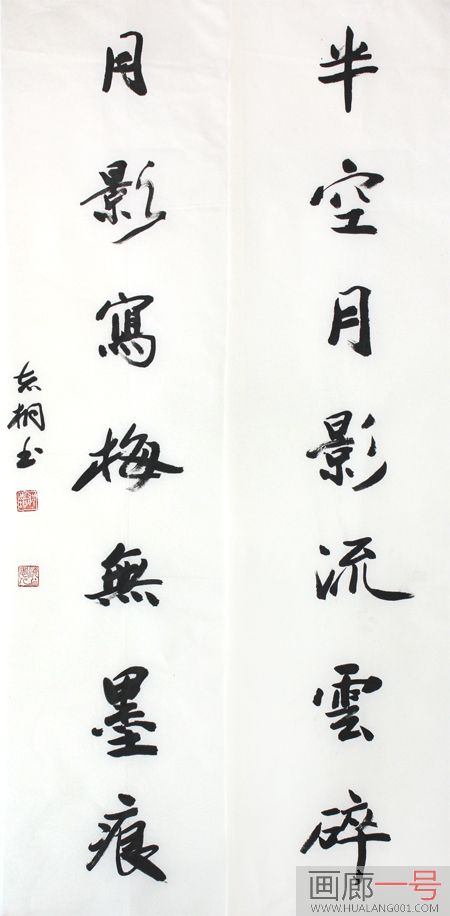 半空月影流雲碎
月影寫梅無墨痕
志桐书
画廊一号
WWW.HUALANG001.COM